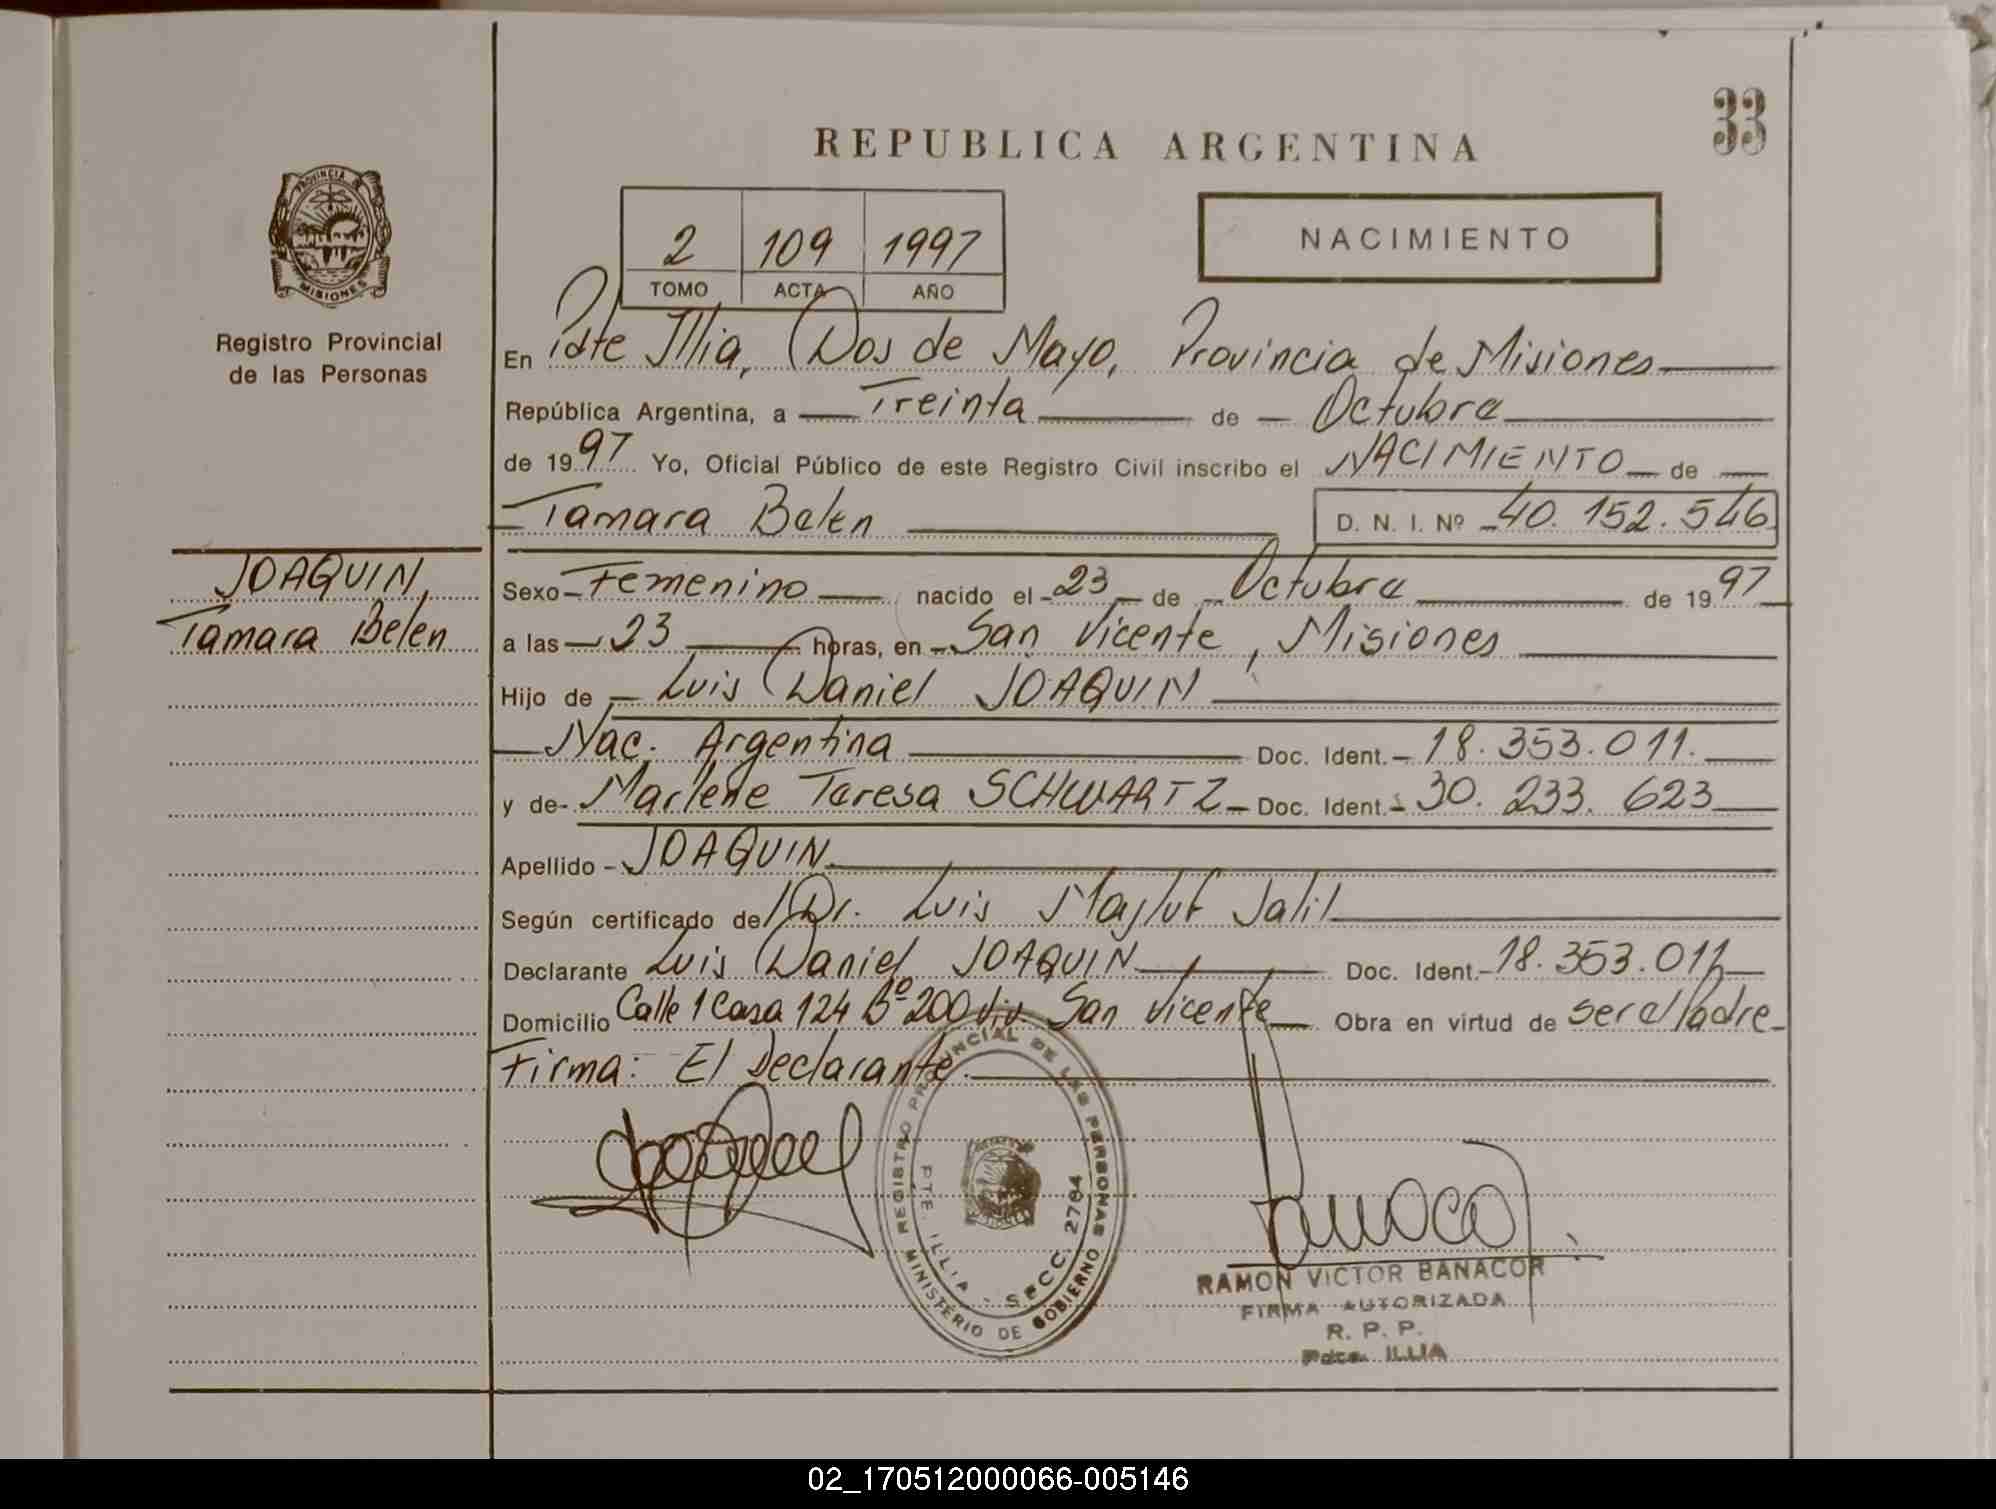 33
REPUBLICA ARGENTINA
PROVINCIA DE
MISIONES
Registro Provincial
de las Personas
2 109 1997
TOMO ACTA AÑO
NACIMIENTO
En Pdte Illia, Dos de Mayo, Provincia de Misiones
República Argentina, a Treinta de Octubre
de 1997 Yo, Oficial Público de este Registro Civil inscribo el NACIMIENTO de
Tamara Belen D. N. I. Nº 40.152.546
JOAQUIN,
Tamara Belen
Sexo Femenino nacido el 23 de Octubre de 1997
a las 23 horas, en San Vicente, Misiones
Hijo de Luis Daniel JOAQUIN
Nac. Argentina Doc. Ident. 18.353.011.
y de Marlene Teresa SCHWARTZ Doc. Ident. 30.233.623
Apellido JOAQUIN
Según certificado de Dr. Luis Majluf Jalil
Declarante Luis Daniel JOAQUIN Doc. Ident. 18.353.011
Domicilio Calle 1 Casa 124 Bº 200 viv San Vicente Obra en virtud de ser el Padre
Firma: El Declarante
REGISTRO PROVINCIAL DE LAS PERSONAS
MINISTERIO DE GOBIERNO
PTE. ILLIA - SECC. 2764
MISIONES
RAMON VICTOR BANACOR
FIRMA AUTORIZADA
R. P. P.
Pdte. ILLIA
02_170512000066-005146